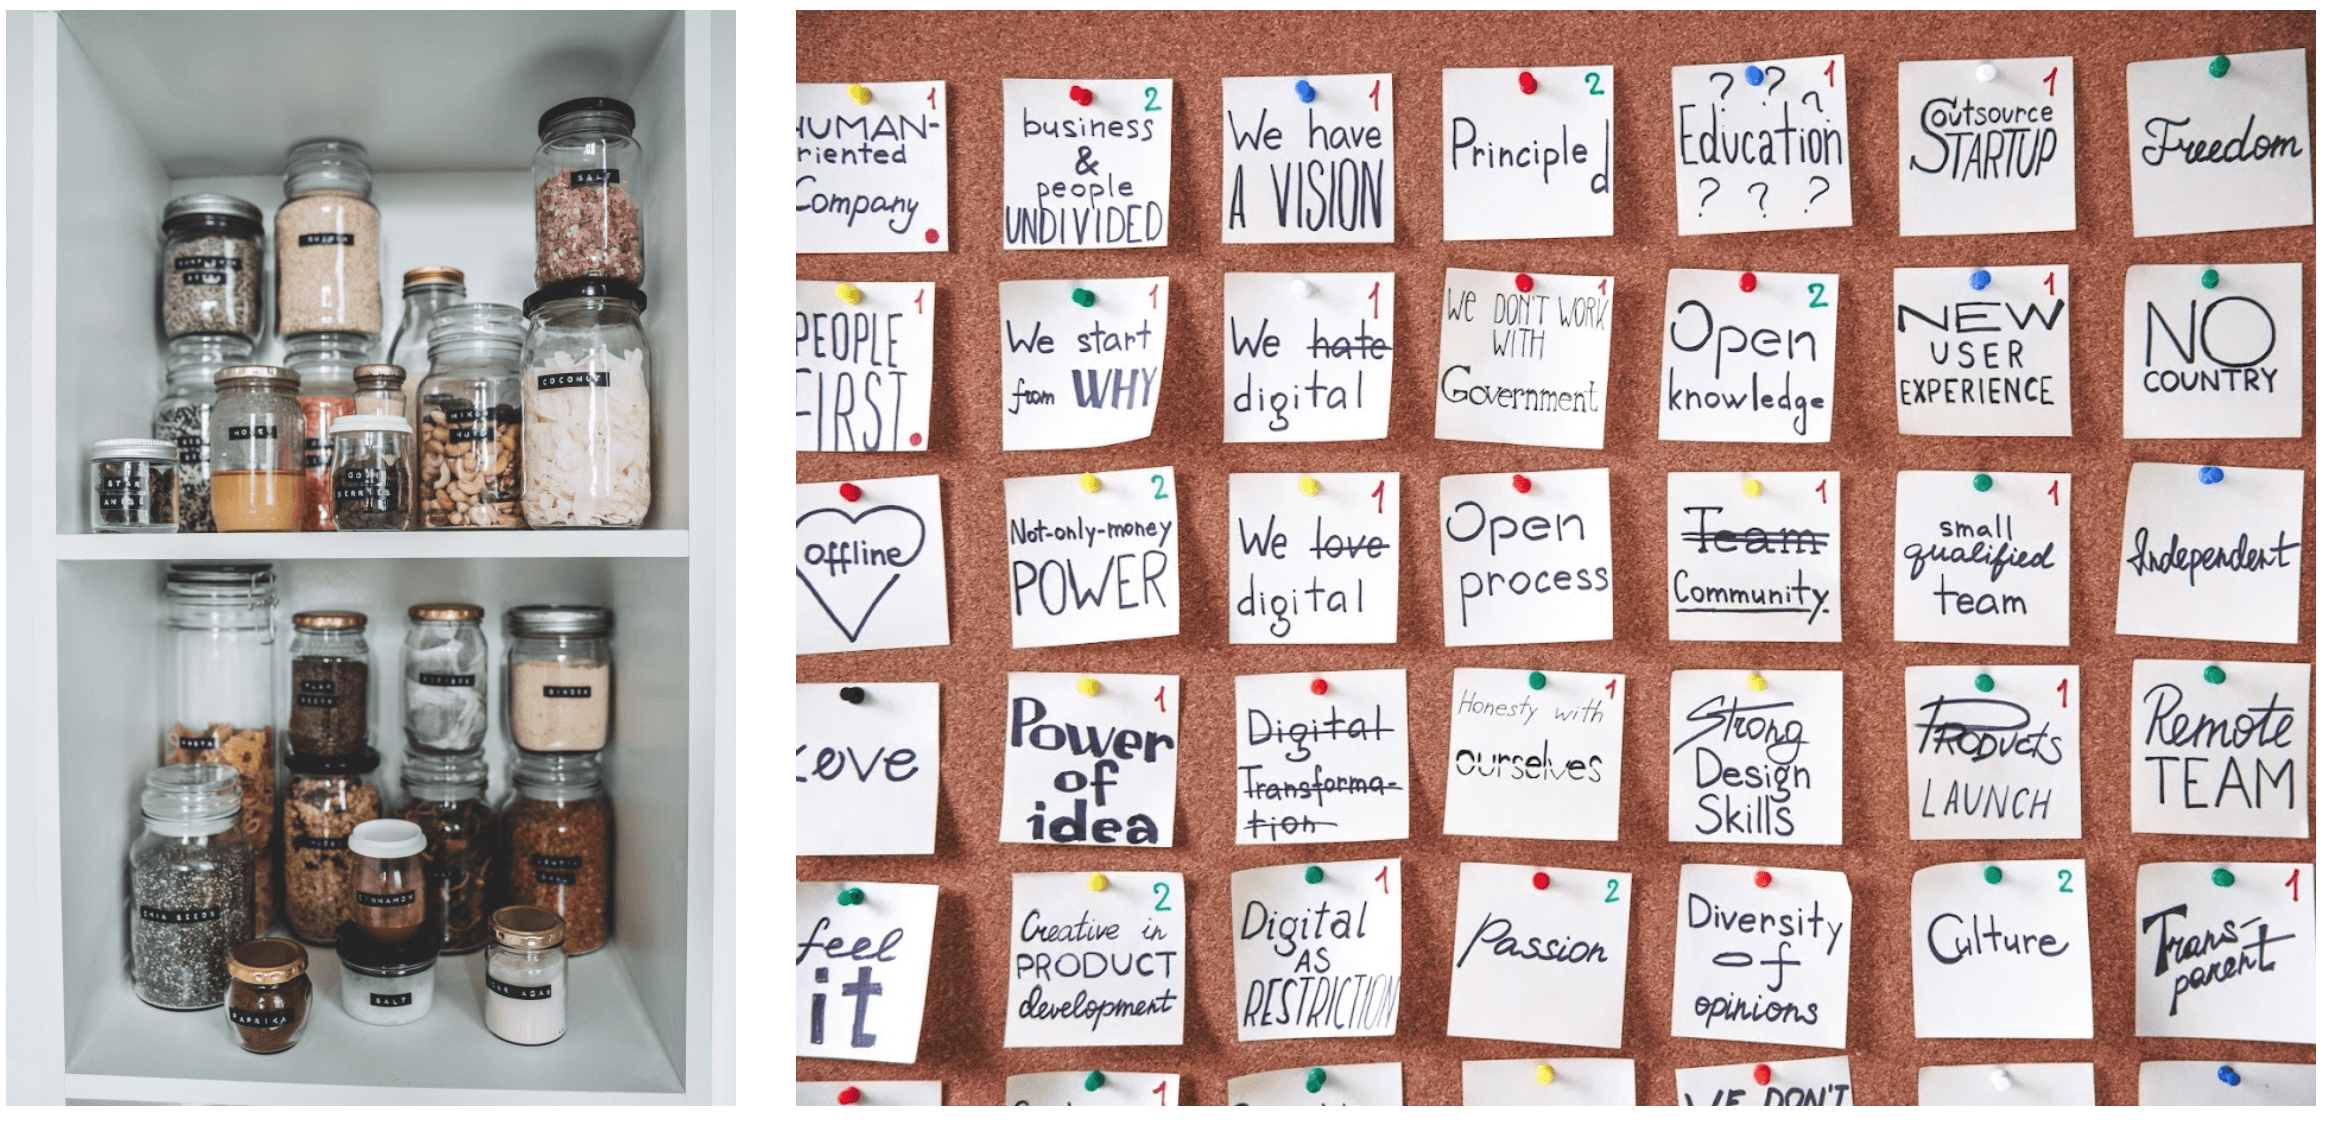 SALT
COCONUT
MIXED
NUTS
HONEY
GOJI
BERRIES
STAR
ANISE
GINGER
PASTA
FLAX
SEEDS
CHIA SEEDS
CINNAMON
PAPRIKA
SALT
AGAR AGAR
1
HUMAN-
riented
Company
2
business
&
people
UNDIVIDED
1
We have
A VISION
2
Principled
1
? ? ?
Education
? ? ?
1
Outsource
STARTUP
Freedom
1
PEOPLE
FIRST
1
We start
from WHY
1
We hate
digital
1
We DON'T WORK
WITH
Government
2
Open
knowledge
1
NEW
USER
EXPERIENCE
NO
COUNTRY
offline
2
Not-only-money
POWER
1
We love
digital
Open
process
1
Team
Community
1
small
qualified
team
Independent
Love
1
Power
of
idea
Digital
Transforma-
tion
1
Honesty with
ourselves
Strong
Design
Skills
1
PRODUCTS
LAUNCH
Remote
TEAM
feel
it
2
Creative in
PRODUCT
development
1
Digital
AS
RESTRICTION
2
Passion
Diversity
of
opinions
2
Culture
1
Trans-
parent
1
WE DON'T